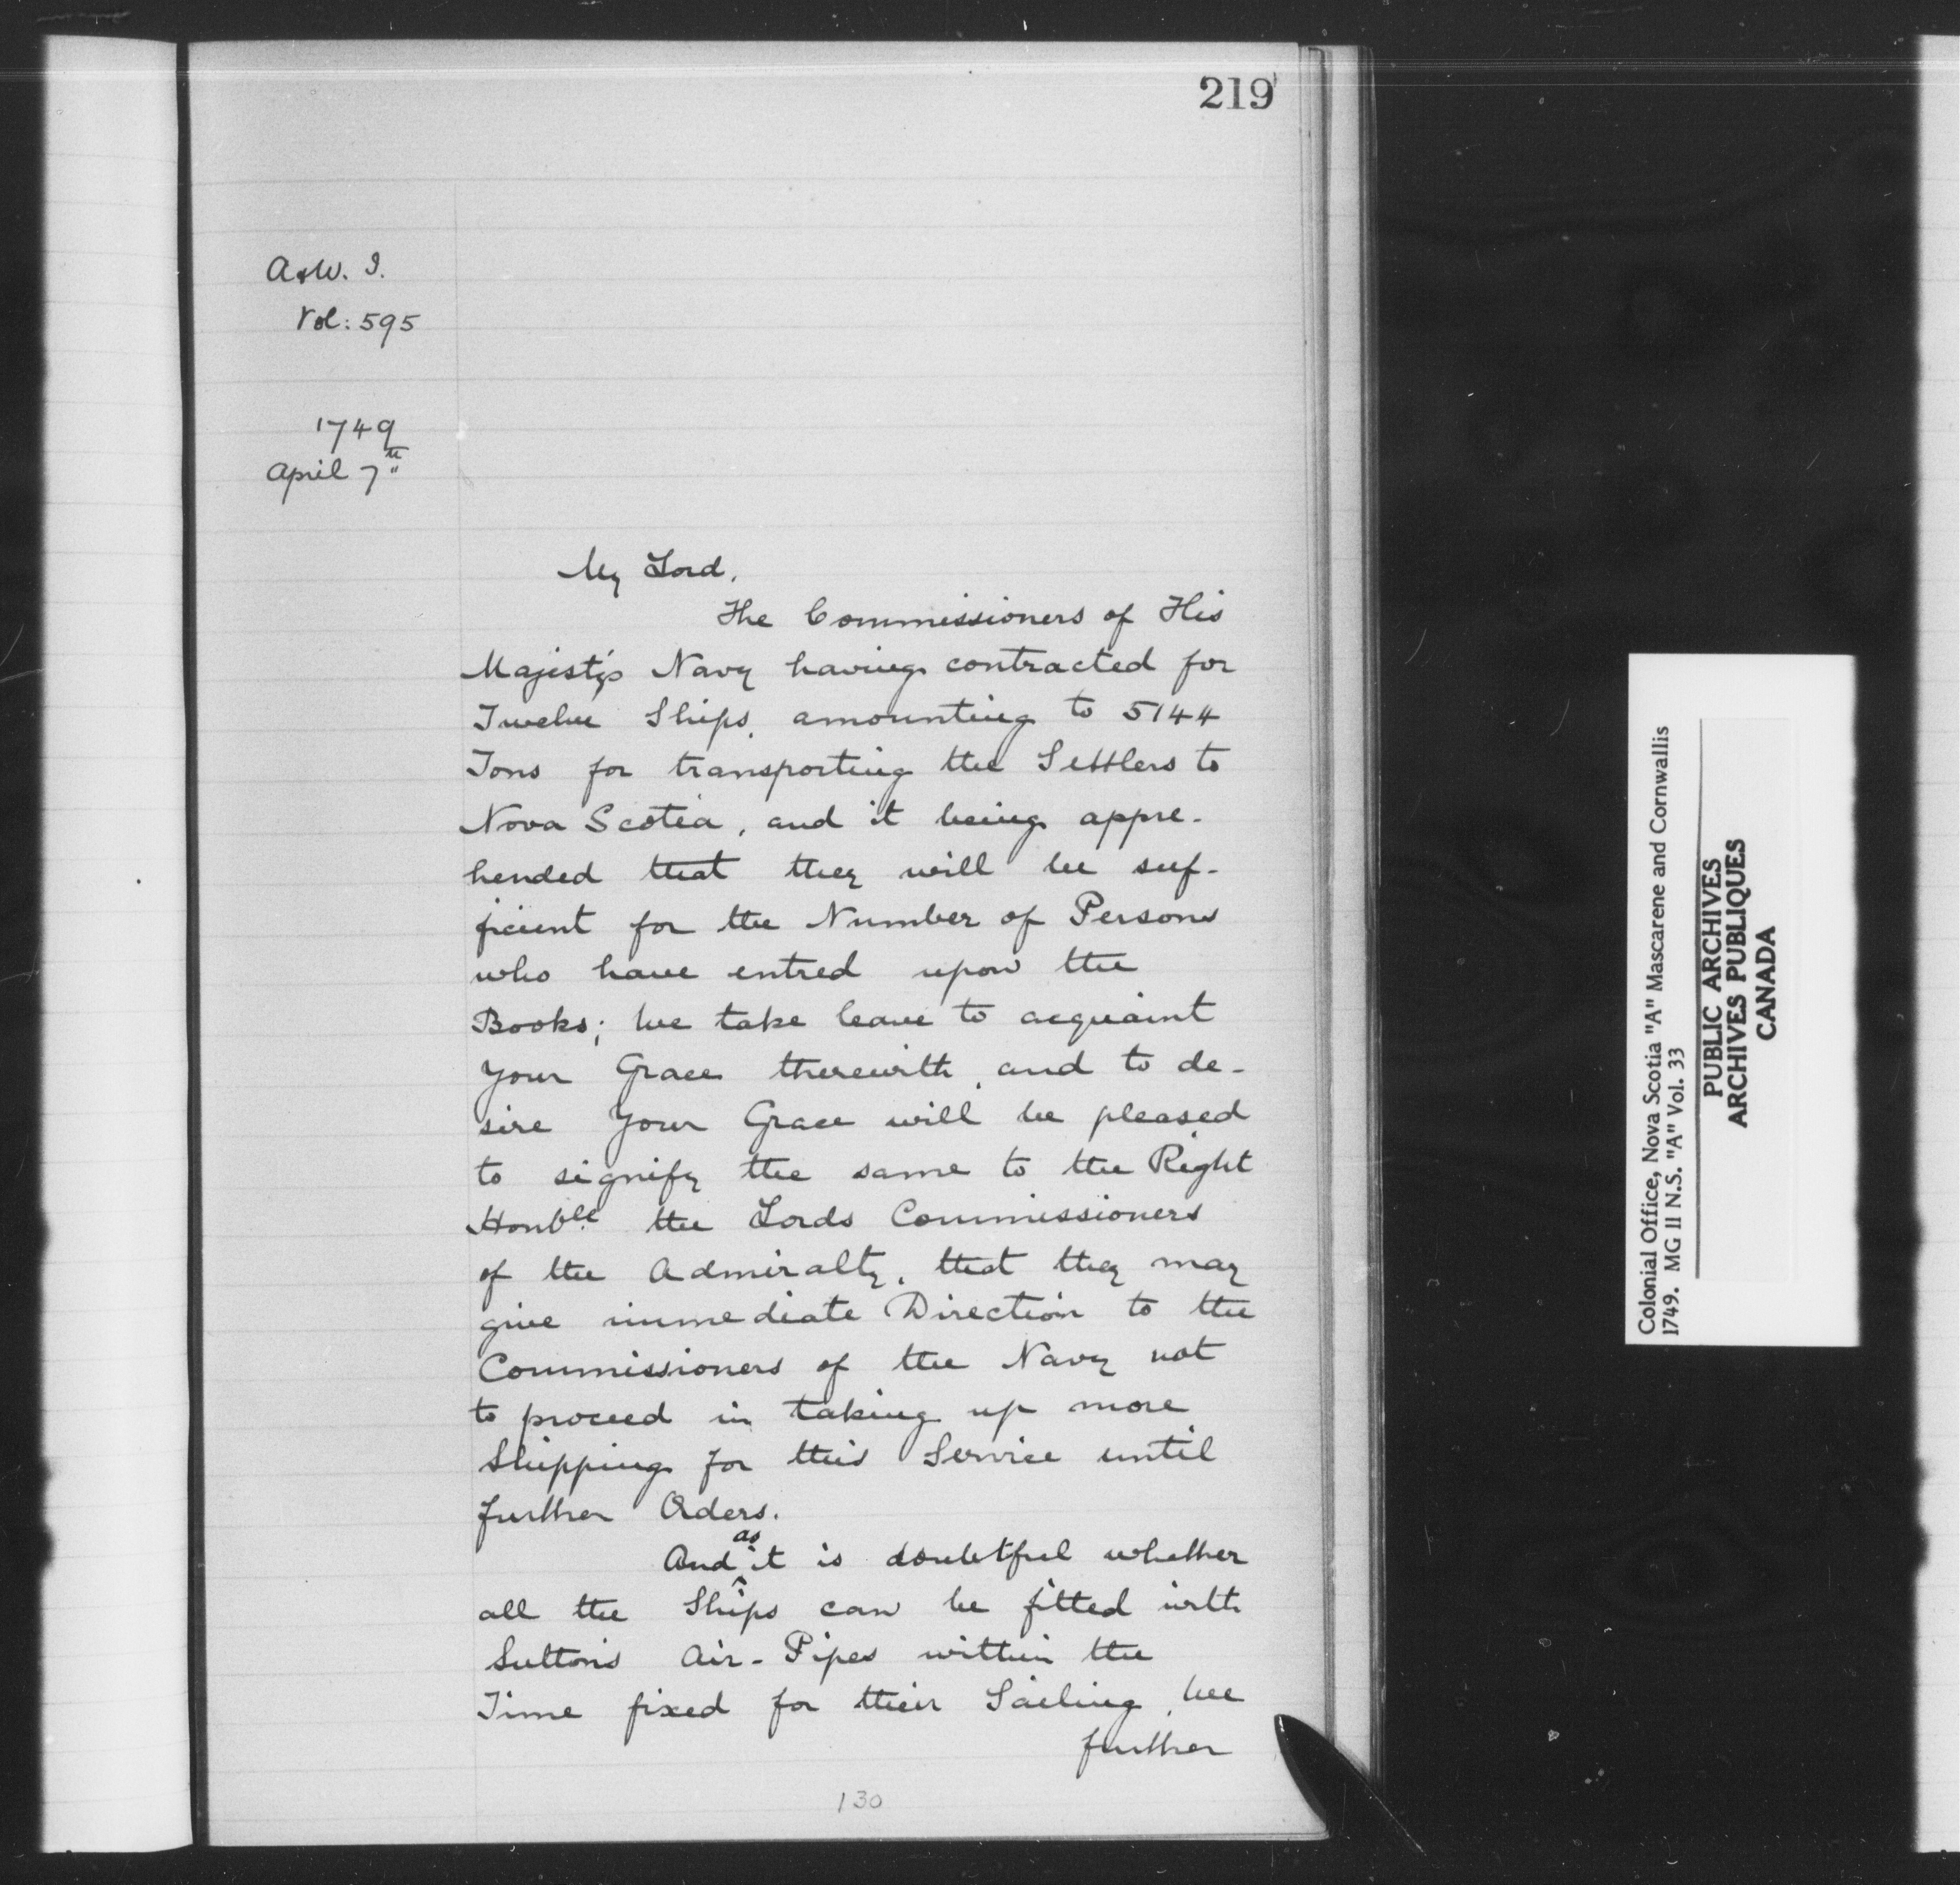 219
A & W. I.
Vol: 595
1749
April 7th
My Lord,
The Commissioners of His
Majesty's Navy having contracted for
Twelve Ships, amounting to 5144
Tons for transporting the Settlers to
Nova Scotia, and it being appre-
hended that they will be suf-
ficient for the Number of Persons
who have entred upon the
Books; We take leave to acquaint
Your Grace therewith, and to de-
sire Your Grace will be pleased
to signify the same to the Right
Honble the Lords Commissioners
of the Admiralty, that they may
give immediate Direction to the
Commissioners of the Navy not
to proceed in taking up more
Shipping for this Service until
further Orders.
And as it is doubtful whether
all the Ships can be fitted with
Sutton's Air-Pipes within the
Time fixed for their Sailing, We
further
130
Colonial Office, Nova Scotia "A" Mascarene and Cornwallis
1749. MG 11 N.S. "A" Vol. 33
PUBLIC ARCHIVES
ARCHIVES PUBLIQUES
CANADA